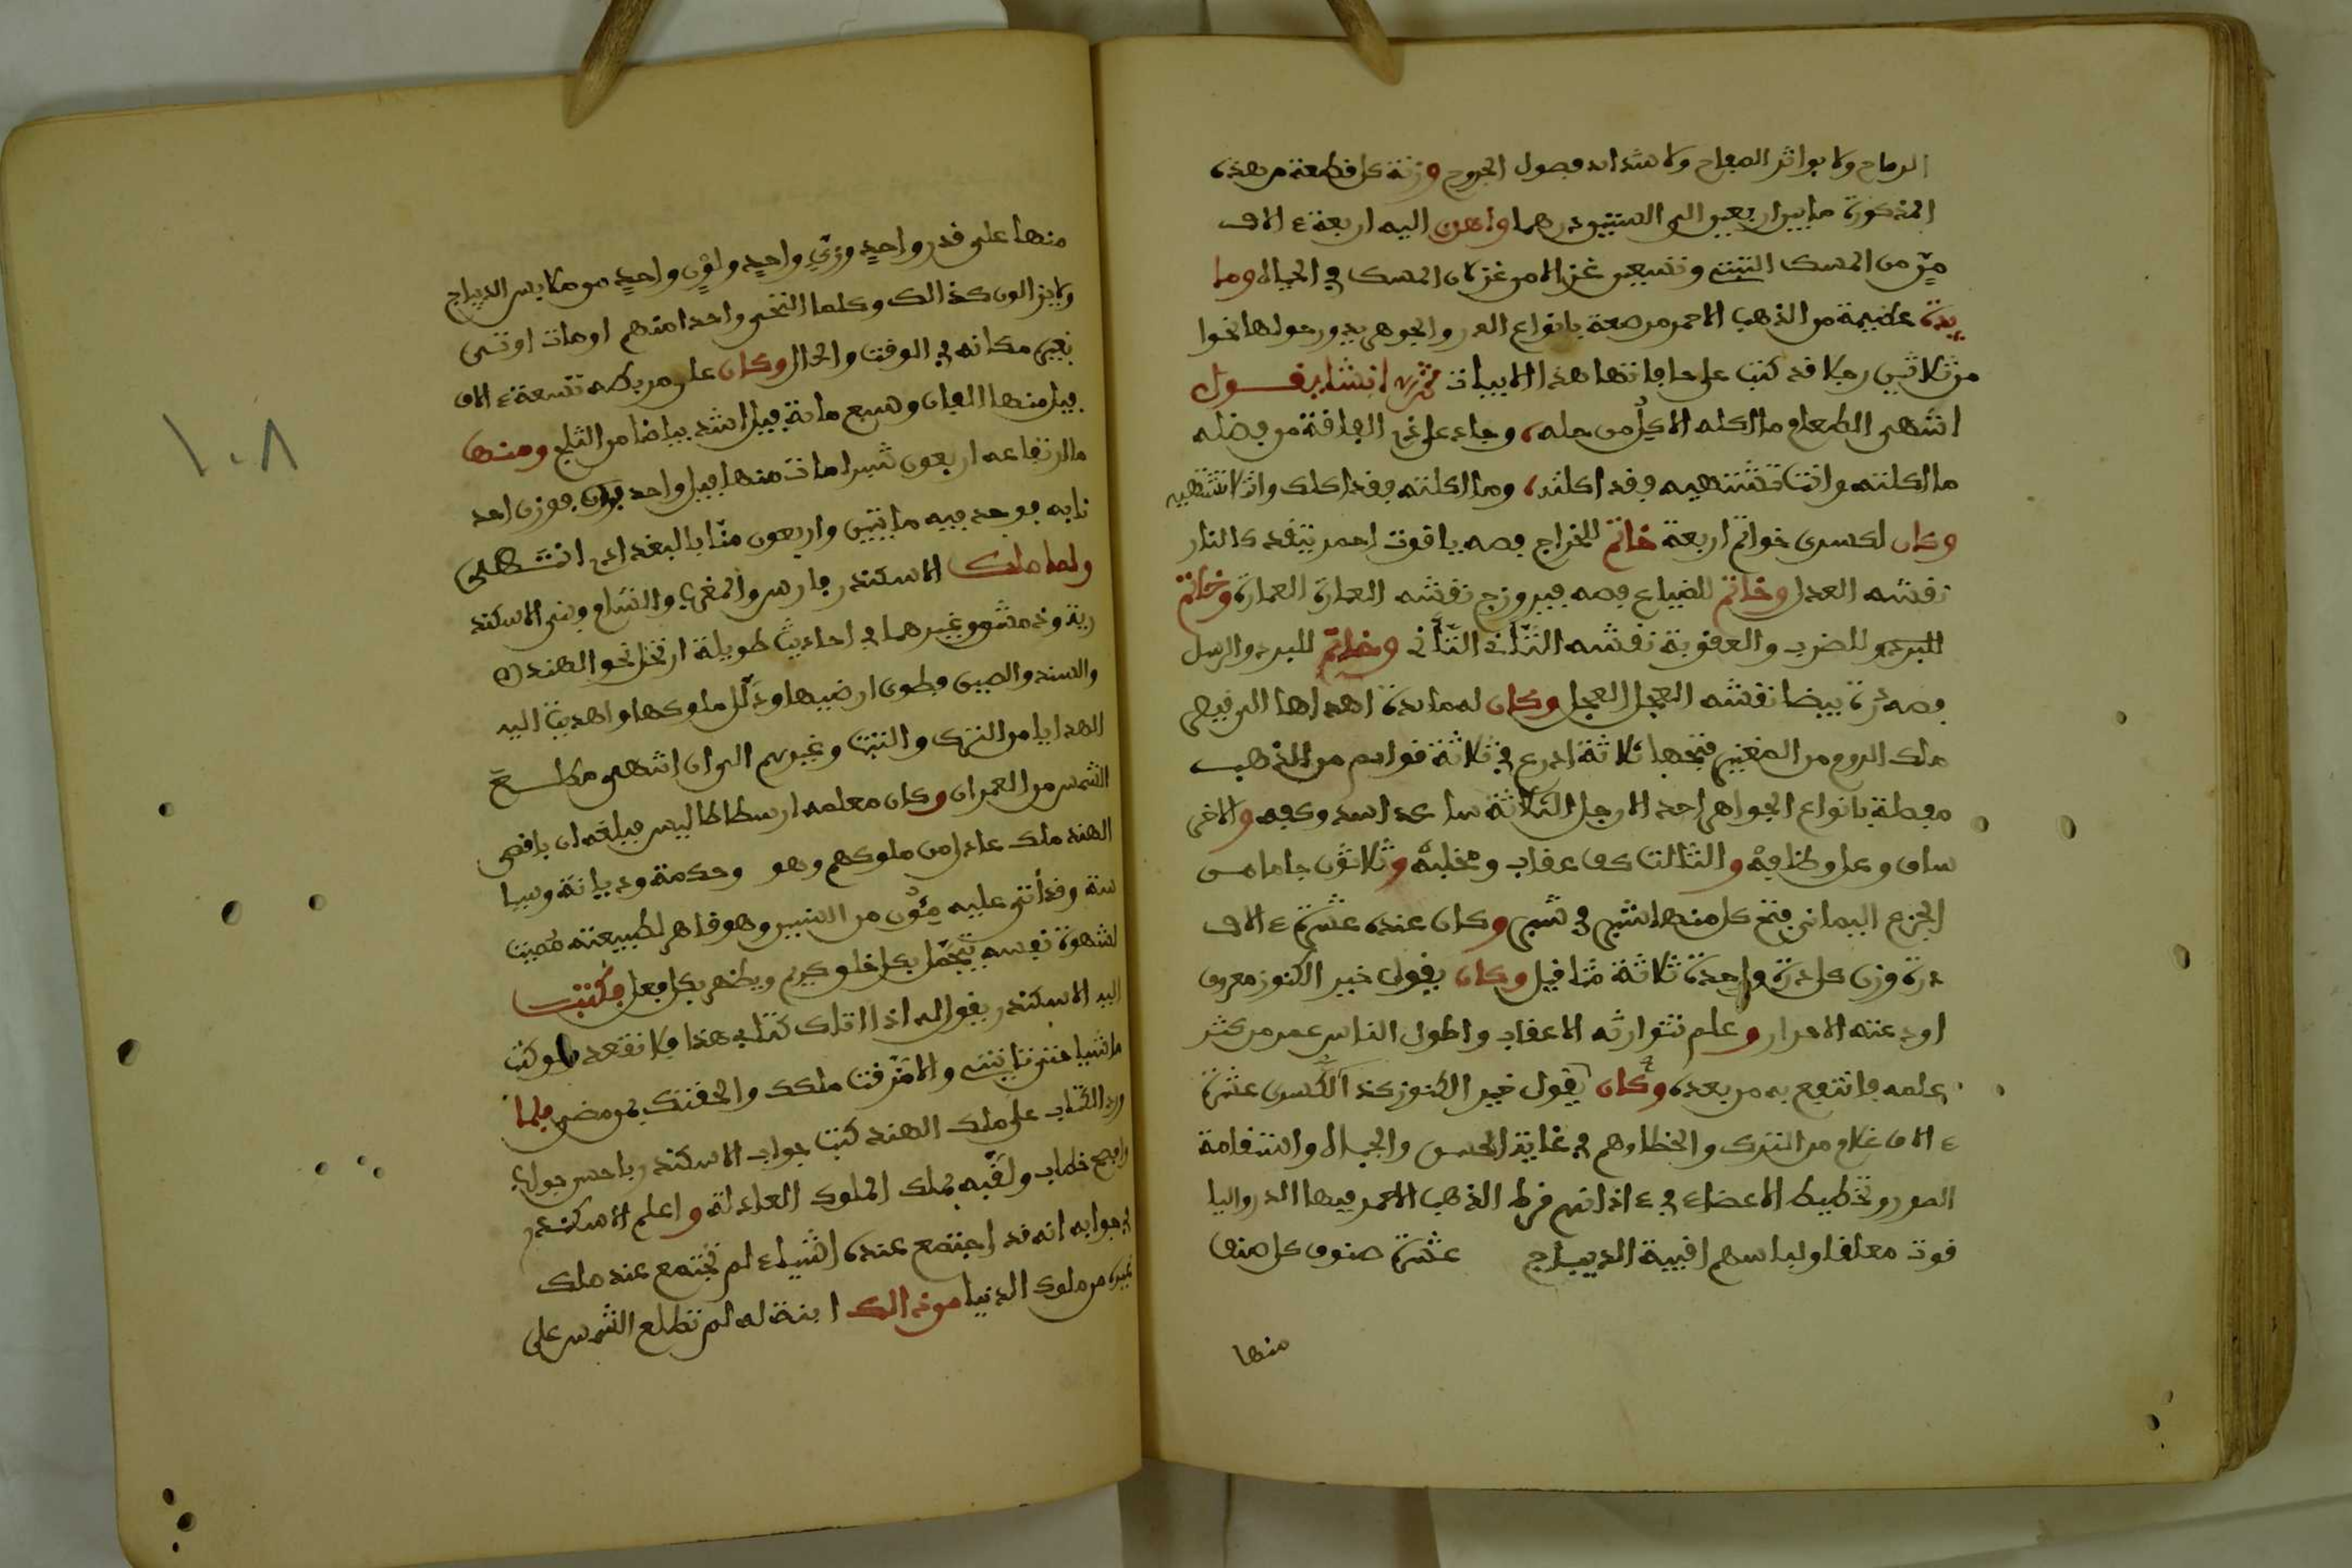 الرماح ولا بواتر الصفاح ولا شدايد فصول الجروح وزنة كل قطعة من هذه
المذكورة ما بين اربعين الى الستين درهما واهدى اليه اربعة ءالاف
منٍّ من المسك التبتي وتسعين غزالا من غزلان المسك في الحياة وما
يدة عظيمة من الذهب الاحمر مرصعة بانواع الدر والجوهر يدور حولها نحوا
من ثلاثين رجلا قد كتب على حافاتها هذا الابيات انشا يقول
اشهى الطعام ما اكله الاكل من حله، وجاد على ذي الفاقة من فضله
ما اكلته وانت تشتهيه فقد اكلته، وما اكلته فقد اكلك وانت لا تشتهيه
وكان لكسرى خواتم اربعة خاتم للخراج فصه ياقوت احمر يتقد كالنار
نقشه العدل وخاتم للضياع فصه فيروزج نقشه العمارة العمارة وخاتم
للضرب والعقوبة نقشه التاني التاني وخاتم للبرد والرسل
فصه درة بيضا نقشه العجل العجل وكان له مايدة اهداها اليه قيصر
ملك الروم من العنبر فتحها ثلاثة اذرع في ثلاثة قوايم من الذهب
مفصلة بانواع الجواهر احد الارجل الثلاثة ساعد اسد وكفه والاخرى
ساق وعل وظلفه والثالث كف عقاب ومخلبه وثلاثون جاما من
الجزع اليماني فتح كل منها شبر في شبر وكان عنده عشرة ءالاف
درة وزن كل درة واحدة ثلاثة مثاقيل وكان يقول خير الكنوز معروف
اودعته الاحرار وعلم تتوارثه الاعقاب واطول الناس عمر من كثر
علمه فانتفع به من بعده وكان يقول خير الكنوز كذا لكسرى عشرة
ءالاف غلام من الترك والخطا وهم في غاية الحسن والجمال واستقامة
الصور وتخطيط الاعضاء في ءاذانهم قرط الذهب الاحمر فيها الدر واليا
قوت معلقا ولباسهم اقبية الديباج عشرة صنوف كل صنف
منها
١٠٨
منها على قدر واحدٍ وزيٍّ واحدٍ ولونٍ واحدٍ من ملابس الديباج
ولا يزالون كذالك وكلما التحى واحدا منهم او مات اوتي
بغيره مكانه في الوقت والحال وكان على مربطه تسعة ءالاف
فيل منها الفان وسبع ماية فيل اشد بياضا من الثلج ومنها
ما ارتفاعه اربعون شبرا مات منها فيل واحد فوزن احد
نابه فوجد فيه مايتين واربعون منّا بالبغدادي انتهى
ولما ملك الاسكندر فارس والمغرب والشام وبنى الاسكند
رية ودمشق وغيرهما في احاديث طويلة ارتحل نحو الهند
والسند والصين فطوى ارضيها وذلّل ملوكها واهديت اليه
الهدايا من الترك والتبت وغيرهم الى ان انتهى مطلع
الشمس من العمران وكان معلمه ارسطاطاليس فبلغه ان باقصى
الهند ملك عادل من ملوكهم وهو وحكمة وديانة وسيا
سة وقد أتى عليه مئون من السنين وهو قاهر لطبيعته مميت
لشهوة نفسه يتجمل بكل خلو كريم ويظهر بكل فعل فكتب
اليه الاسكندر يقول له اذا اتاك كتابي هذا فلا تقعد ولو كنت
ماشيا حتى تاتيني والا مزقت ملكك والحقتك بمن مضى فلما
ورد الكتاب على ملك الهند كتب جواب الاسكندر باحسن جواب
وافصح خطاب ولقّبه بملك الملوك العادلة واعلم الاسكندر
في جوابه انه قد اجتمع عنده اشياء لم تجتمع عند ملك
غيره من ملوك الدنيا من ذالك ابنة له لم تطلع الشمس على